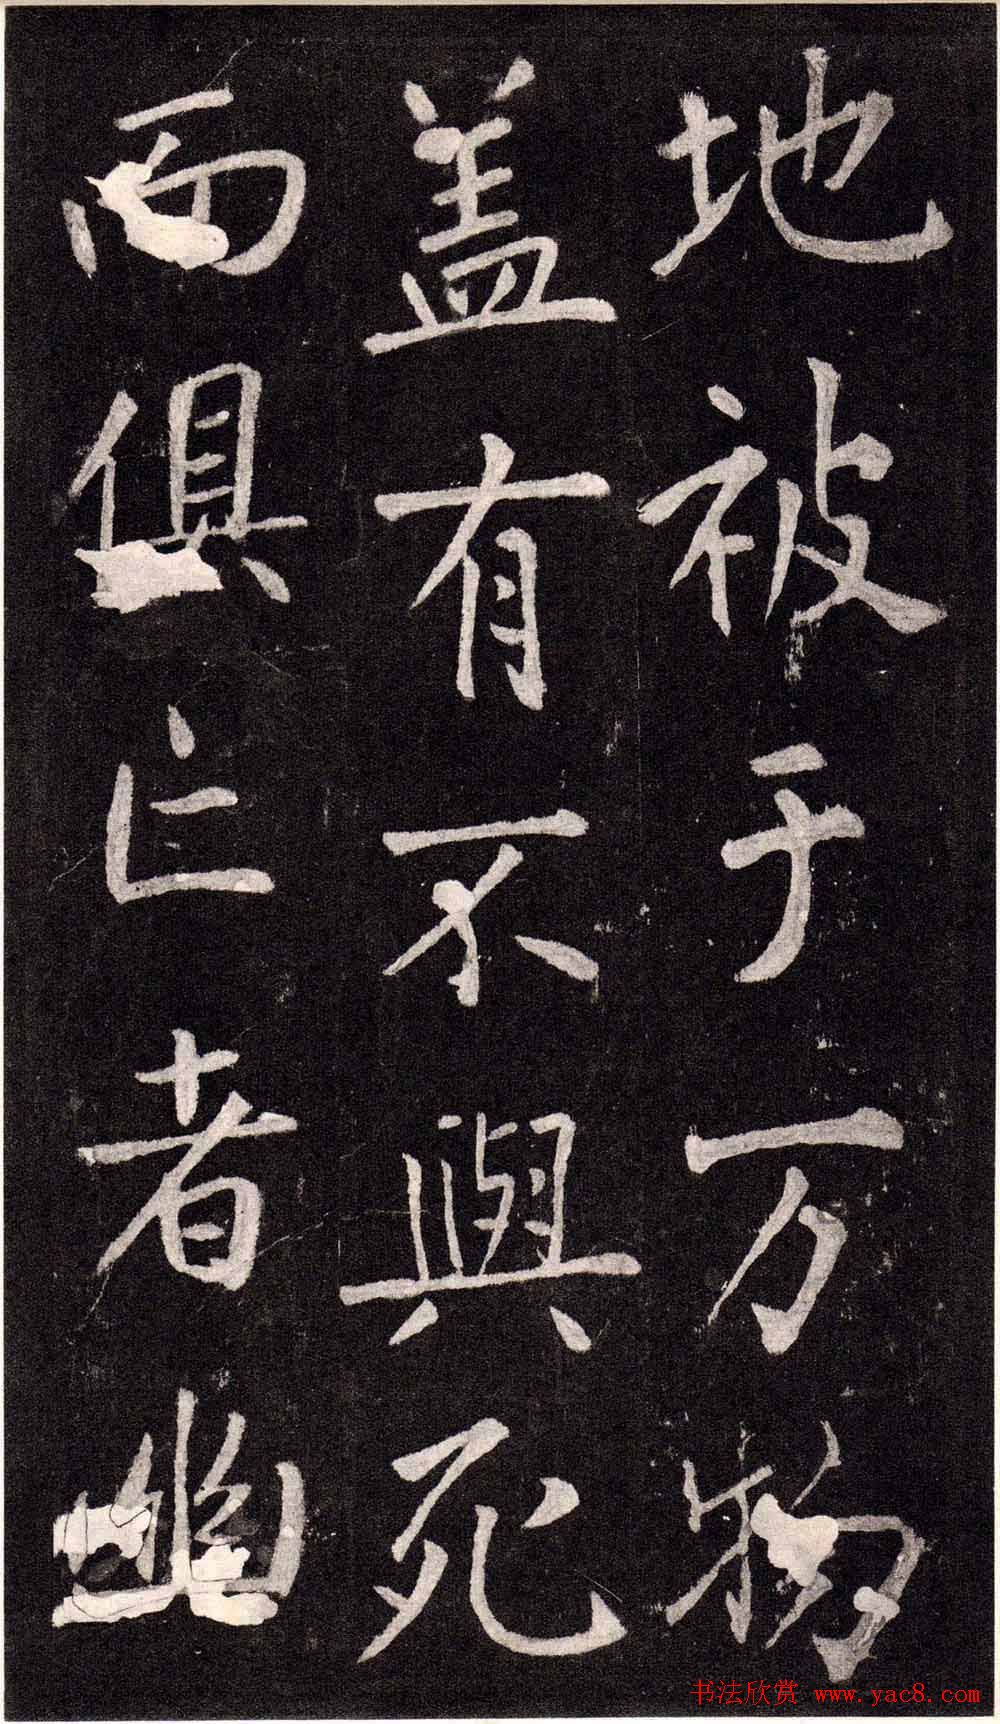 地被于万物
盖有不與死
而俱亡者幽
书法欣赏 www.yac8.com